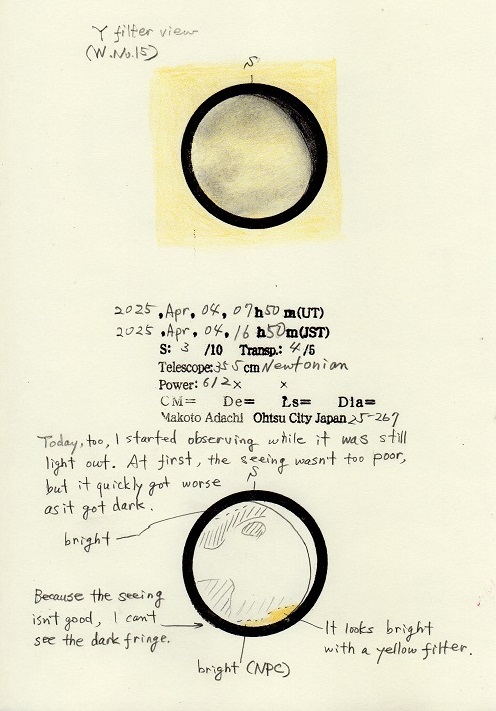 Y filter view
(W.No.15)
S
2025, Apr, 04, 07h50m(UT)
2025, Apr, 04, 16h50m(JST)
S: 3 /10 Transp.: 4/5
Telescope: 35.5cm Newtonian
Power: 612x x
CM= De= Ls= Dia=
Makoto Adachi Ohtsu City Japan 25-267
Today, too, I started observing while it was still
light out. At first, the seeing wasn't too poor,
but it quickly got worse
as it got dark.
S
bright
Because the seeing
isn't good, I can't
see the dark fringe.
It looks bright
with a yellow filter.
bright (NPC)